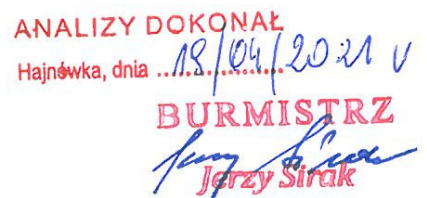 ANALIZY DOKONAŁ
Hajnówka, dnia ...19/04/2021 r
BURMISTRZ
Jerzy Sirak